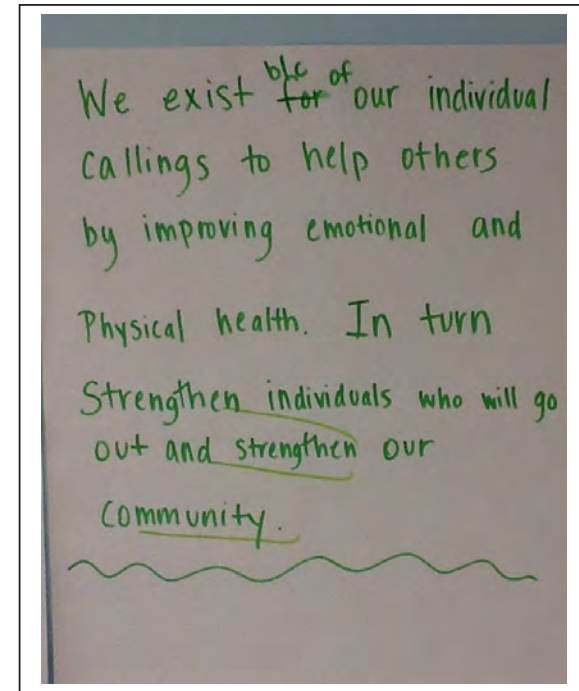 We exist for b/c of our individual
callings to help others
by improving emotional and
Physical health. In turn
Strengthen individuals who will go
out and strengthen our
community.